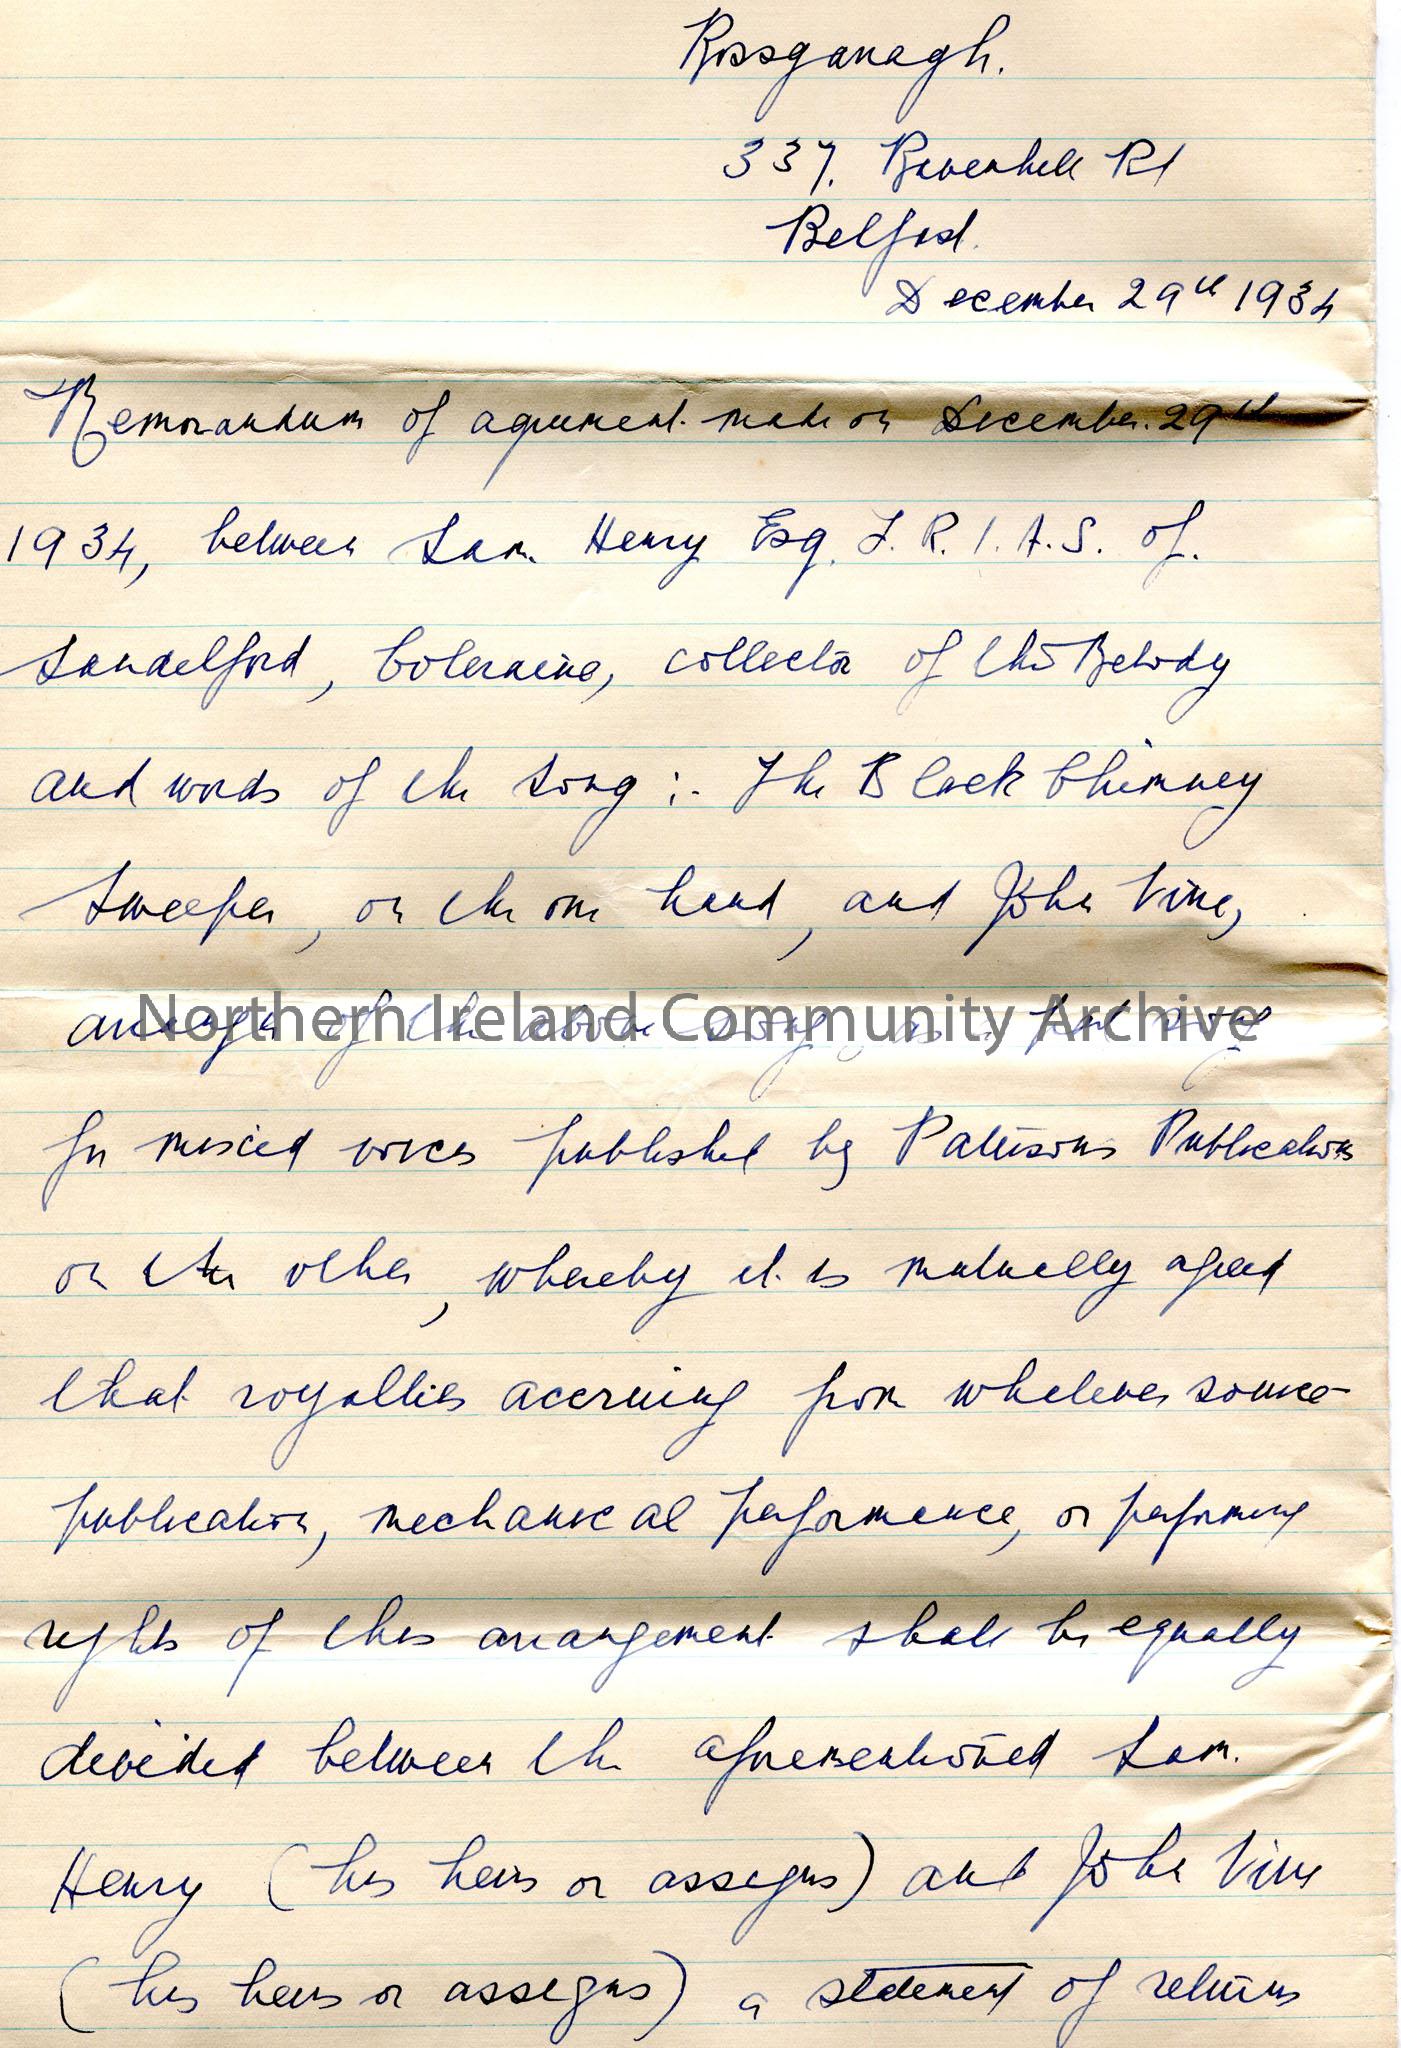 Rossganagh.
337. Ravenhill Rd
Belfast.
December 29th 1934
Memorandum of agreement made on December. 29th
1934, between Sam. Henry Esq. F. R. I. A. S. of.
Sandelford, Coleraine, collector of the Melody
and words of the song :- The Black Chimney
Sweeper, on the one hand, and John Vine,
arranger of the above song, as a part song
Northern Ireland Community Archive
for mixed voices published by Patersons Publications
on the other, whereby it is mutually agreed
that royalties accruing from whatever source
publication, mechanical performance, or performing
rights of this arrangement shall be equally
divided between the aforementioned Sam.
Henry (his heirs or assigns) and John Vine
(his heirs or assigns) a statement of returns